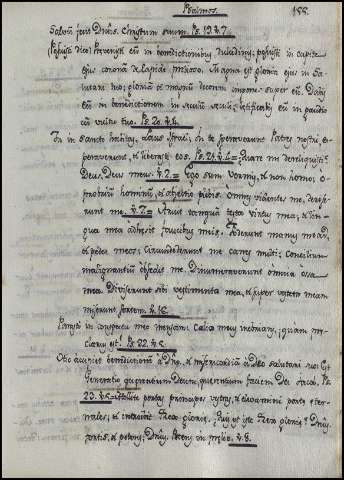 Psalmos. 155.
Salvum fecit Dnus. Christum suum. Ps. 19. v. 7.
eum in benedictionibus dulcedinis; posuisti in capite
ejus coronam de lapide pretioso. Magna est gloria ejus in Sa-
lutari tuo; gloriam et magnum decorem impones super eum. Dabis
eum in benedictionem in seculum seculi; letificabis eum in gaudio
cum vultu tuo. Ps. 20. v. 4.
Tu in sancto habitas, Laus Israel; in te speraverunt Patres nostri, s-
peraverunt, et liberasti eos. Ps. 21. v. 4. = Quare me dereliquisti?
Deus, Deus meus. v. 2. = Ego sum vermis, et non homo; o-
probrium hominum, et abjectio plebis. Omnes videntes me, deris-
erunt me. v. 7. = Aruit tanquam testa virtus mea, et lin-
gua mea adhesit faucibus meis. Foderunt manus meas,
et pedes meos; circumdederunt me canes multi; Concilium
malignantium obsedit me. Dinumeraverunt omnia ossa
mea. Diviserunt sibi vestimenta mea, et super vestem meam
miserunt sortem. v. 16.
Parasti in conspectu meo mensam. Calix meus inebrians, quam pre-
clarus est! Ps. 22. v. 5.
Hic accipiet benedictionem a Dno. et misericordiam a Deo salutari suo. Est
Generatio querentium Deum, querentium faciem Dei Jacob. Ps.
23. v. 5. = Attollite portas, principes, vestras, et elevamini porte eter-
nales; et introibit Rex glorie. Quis est iste Rex glorie? Dnus.
fortis, et potens; Dnus. potens in prelio. v. 8.